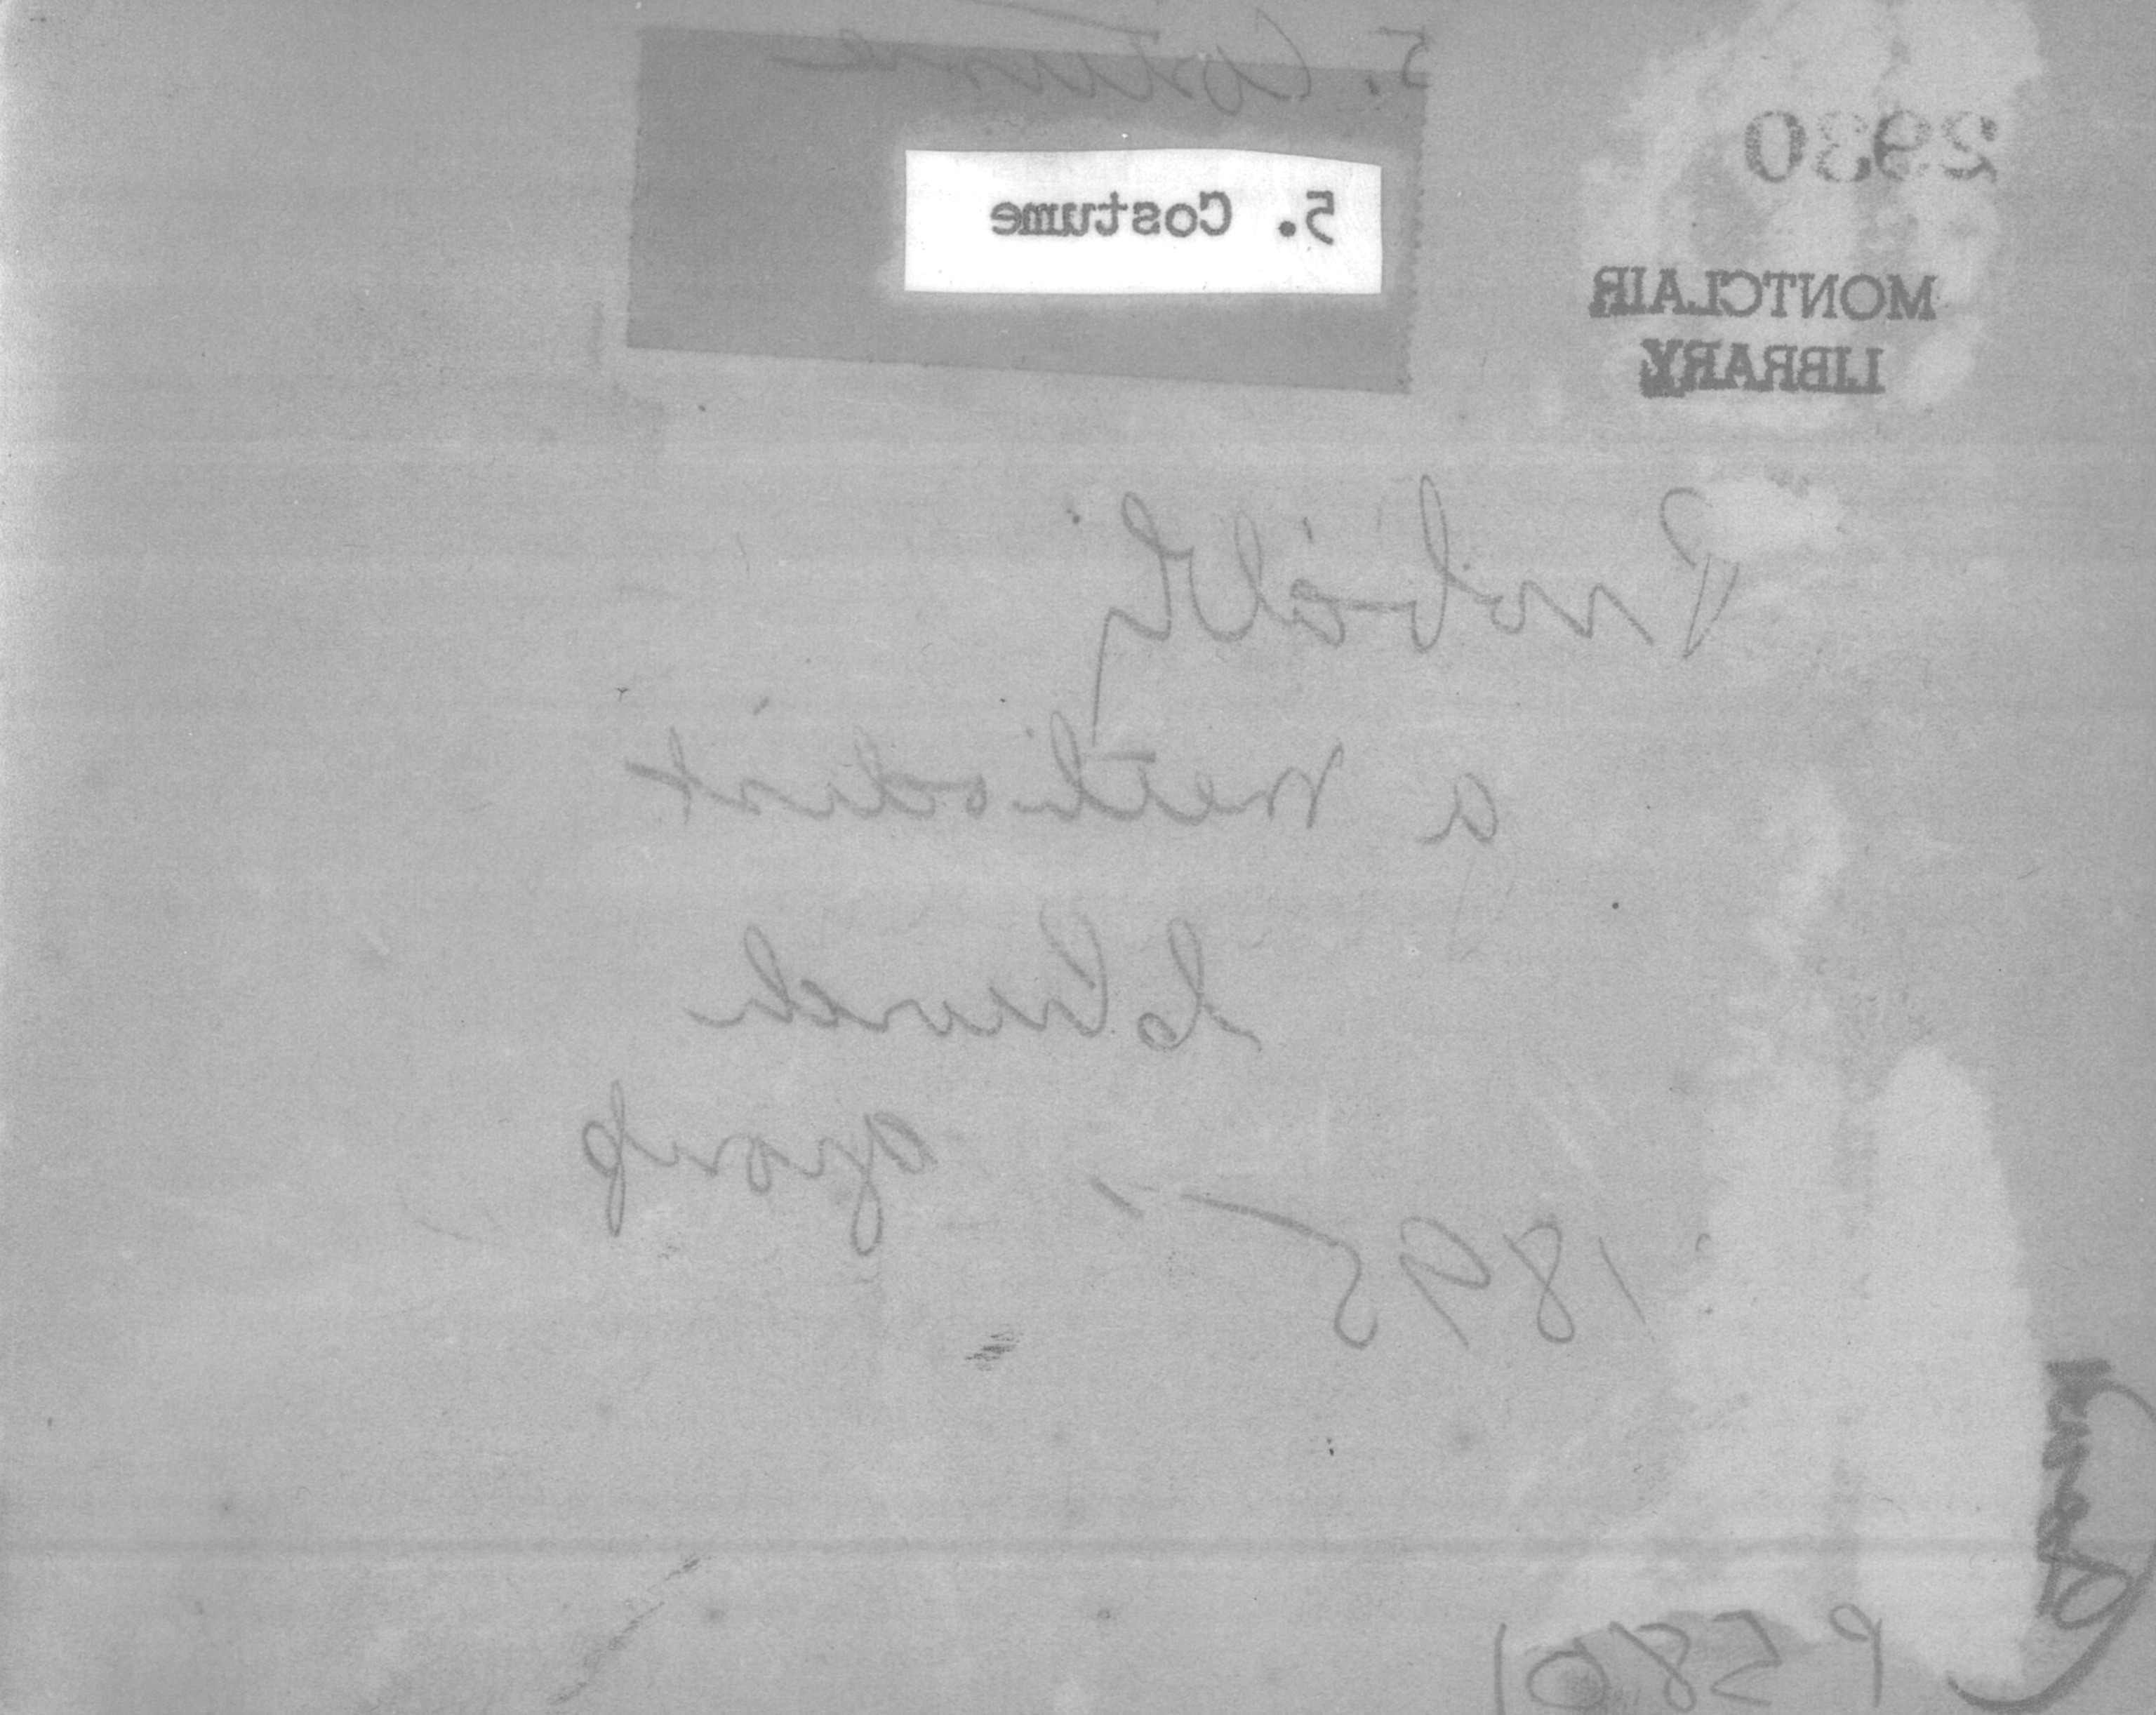 5. Costume
2930
5. Costume
MONTCLAIR
LIBRARY
Probably
a Methodist
Church
group
1895
P5801